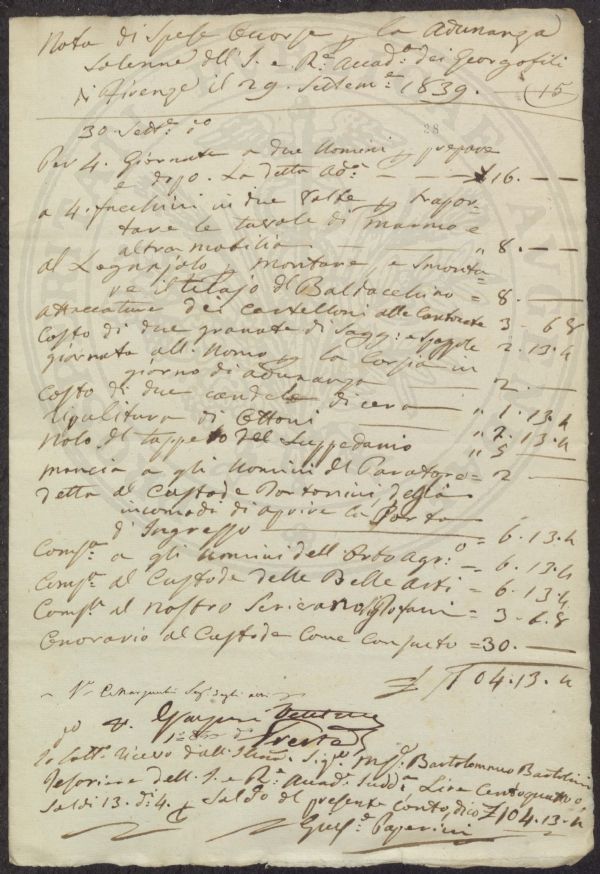 Nota di Spese Occorse p la Adunanza
Solenne dell' I. e R.e Accad.a dei Georgofili
di Firenze il 29. Settem.e 1839.
(15)
28
30. Sett.e
Per 4. Giornate a due Uomini p prepare
e dopo. La detta Ad.a £16. —
a 4. facchini in due Volte p traspor-
tare le tavole di Marmo e
altra mobilia — " 8. —
al Legnajolo p montare, e smonta
re il telajo dl Baldacchino = 8. —
attaccature dei cartelloni alle Cantonate 3 - 6 8
Costo di due granate di Sagg: e 2. 13. 4
giornata all' Uomo p la Corsia in
giorno di adunanza — 2 —
Costo di due candele di cera — " 1. 13. 4
Ripulitura di Ottoni — " 2. 13. 4
Nolo dl tappeto del Suppedanio " 5 —
mancia a gli Uomini dl Paratore = 2 —
Detta al Custode Portonini, degl'
incomodi di aprire la Porta
d' Ingresso — = 6. 13. 4
Comp.a a gli Uomini dell' Orto Agr:o = 6. 13. 4
Comp.a al Custode delle Belle Arti = 6. 13. 4
Comp.a al nostro Scrivano = 3 - 6. 8
Onorario al Custode Come Consueto = 30. —
£ 104. 13. 4
Segr. degli atti
Io Sott.o ricevo dall' Illmo. Sig.re Bartolommeo Bartolini
Tesoriere dell' I. e R.e Accad.a Sudd.a Lire Centoquattro,
Soldi 13. d: 4. p Saldo dl presente Conto, dico £104. 13. 4
Gugl.o Paperini